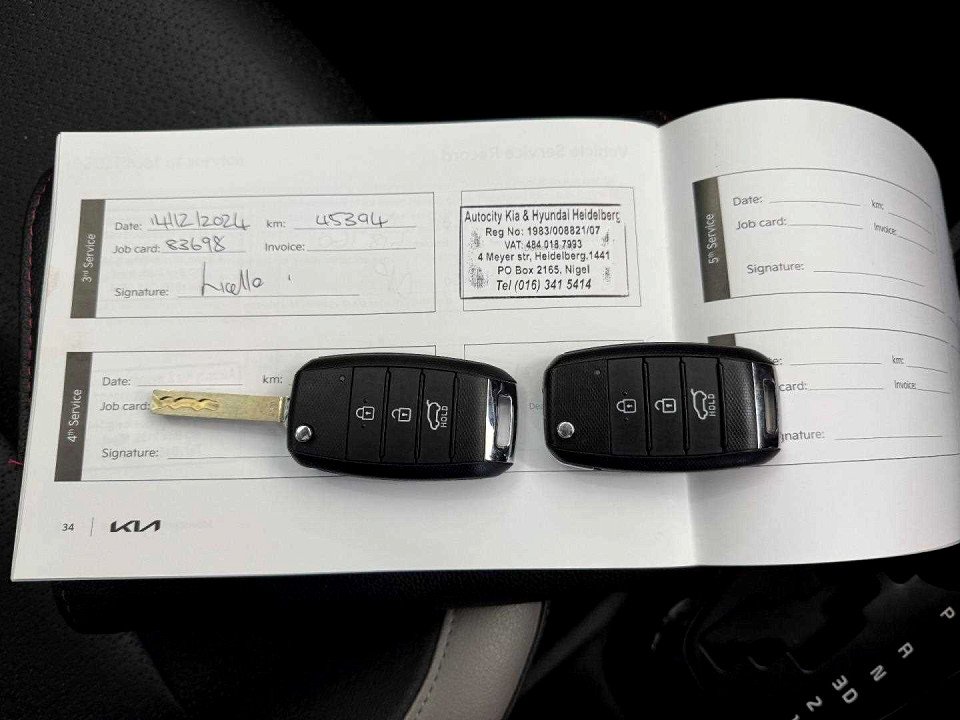 3rd Service
Date: 14/12/2024 km: 45394
Job card: 83698 Invoice:
Signature:
Autocity Kia & Hyundai Heidelberg
Reg No: 1983/008821/07
VAT: 484 018 7993
4 Meyer str, Heidelberg, 1441
PO Box 2165, Nigel
Tel (016) 341 5414
4th Service
Date: km:
Job card:
Signature:
HOLD
HOLD
34 KIA
5th Service
Date: km:
Job card: Invoice:
Signature:
km:
card: Invoice:
nature:
P
R
N
D
3
2